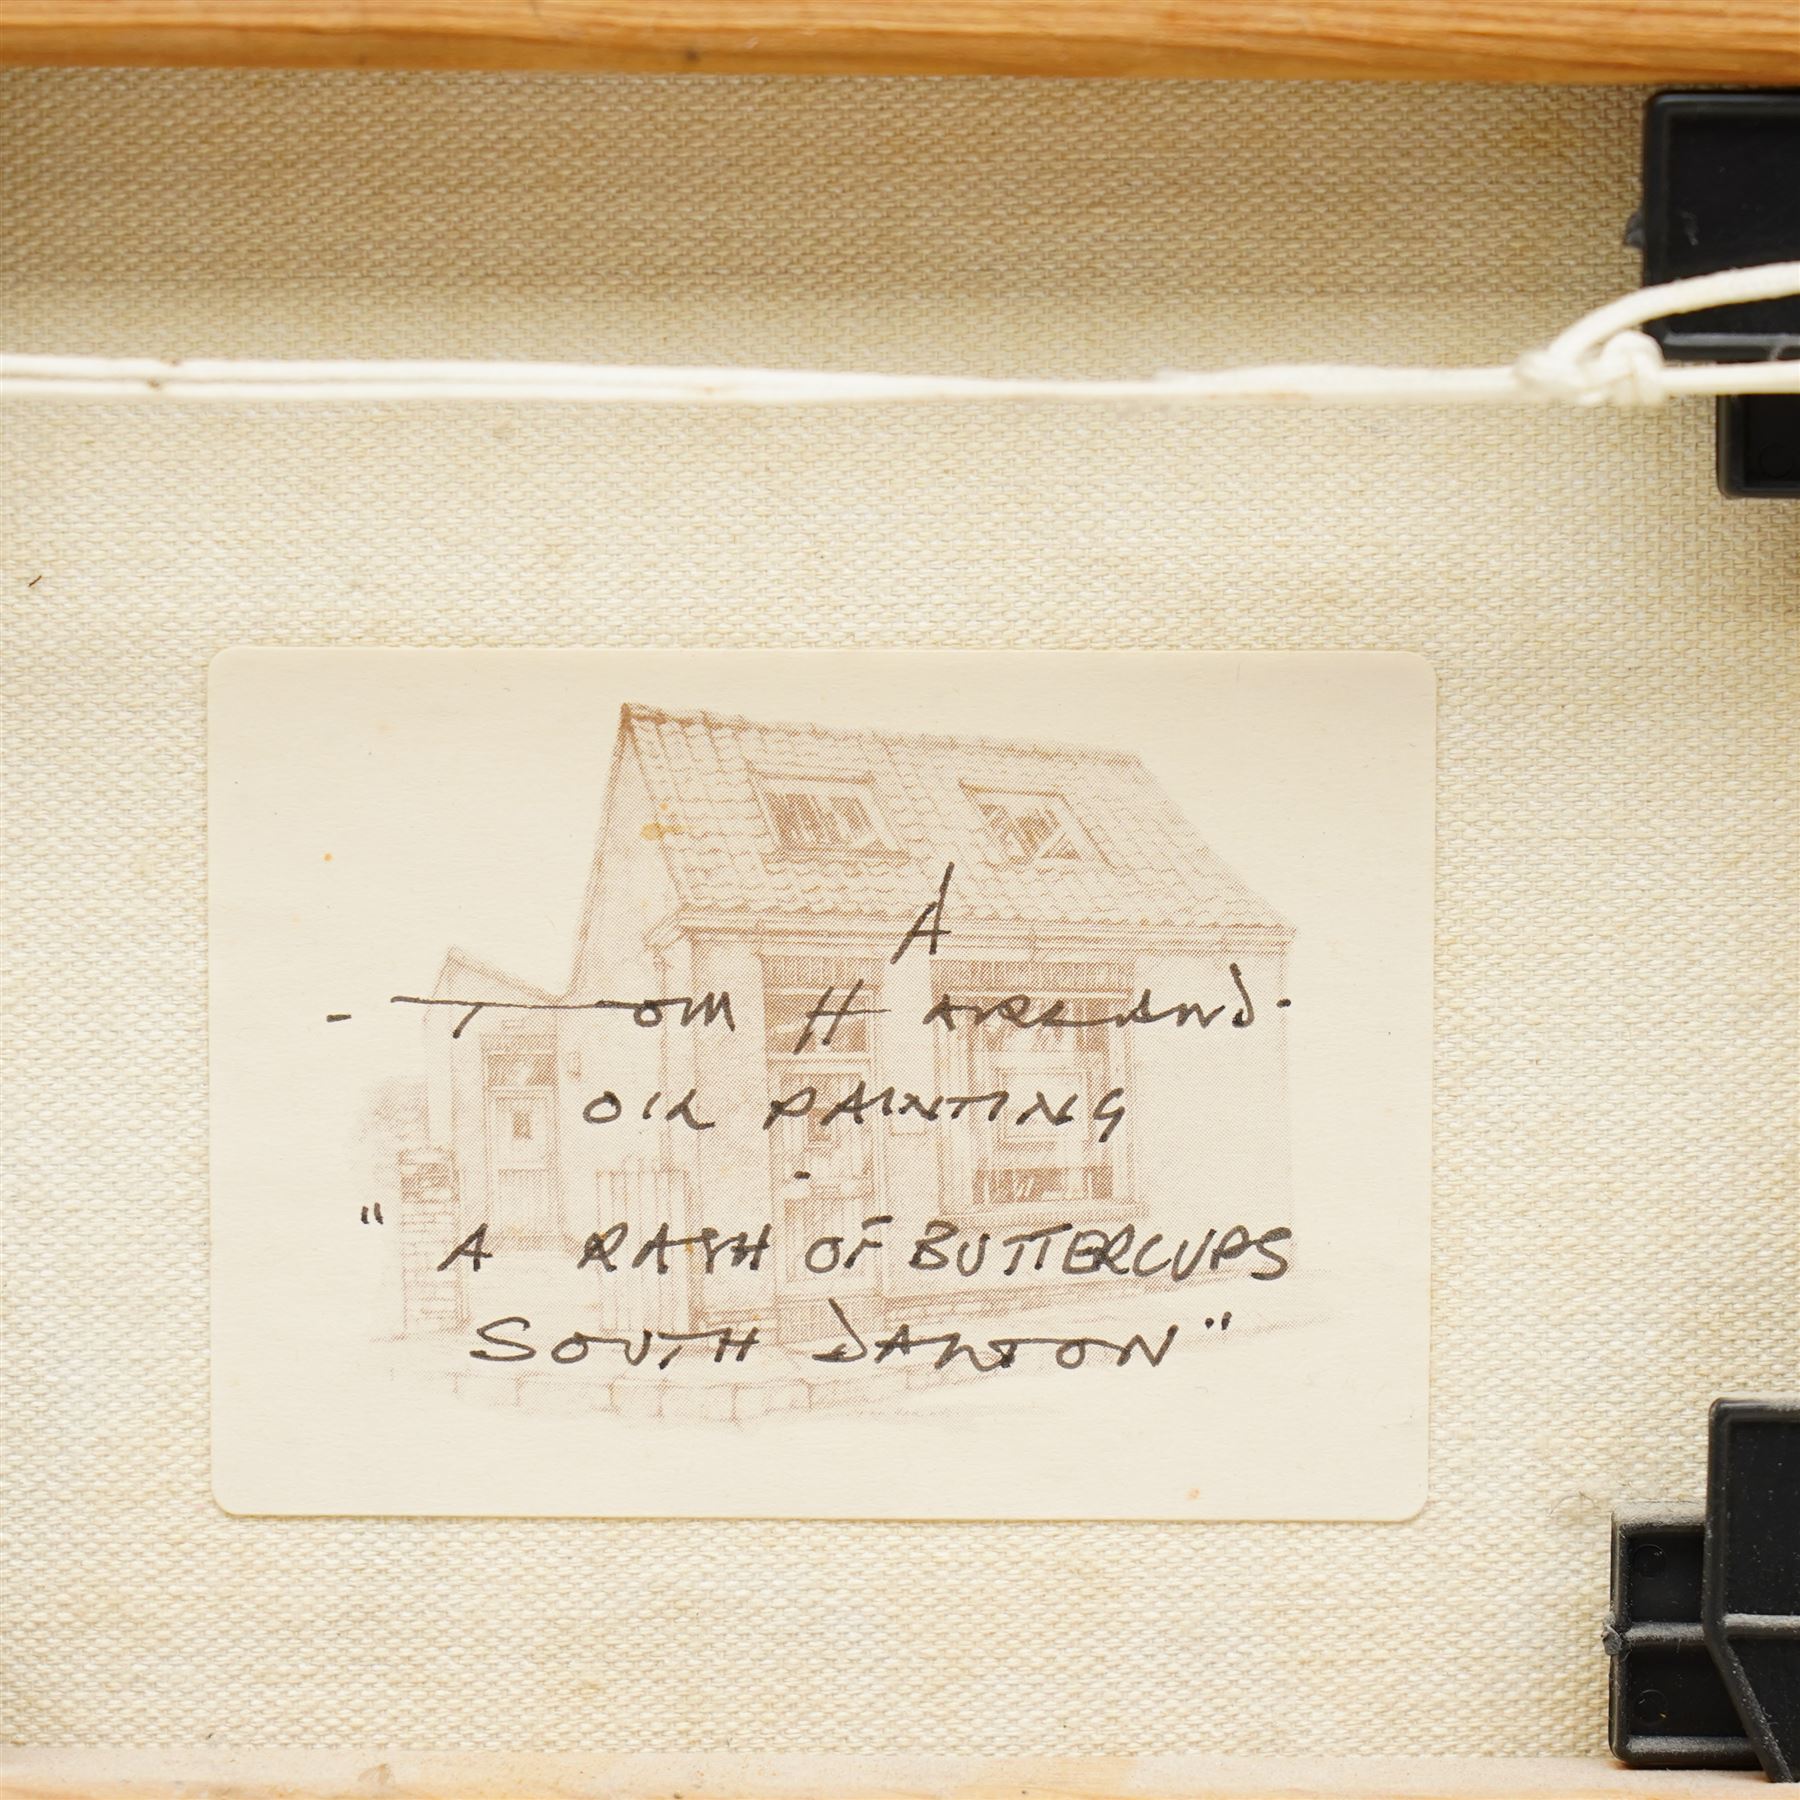 A
- TOM HARLAND -
OIL PAINTING
-
" A RASH OF BUTTERCUPS
SOUTH DALTON "